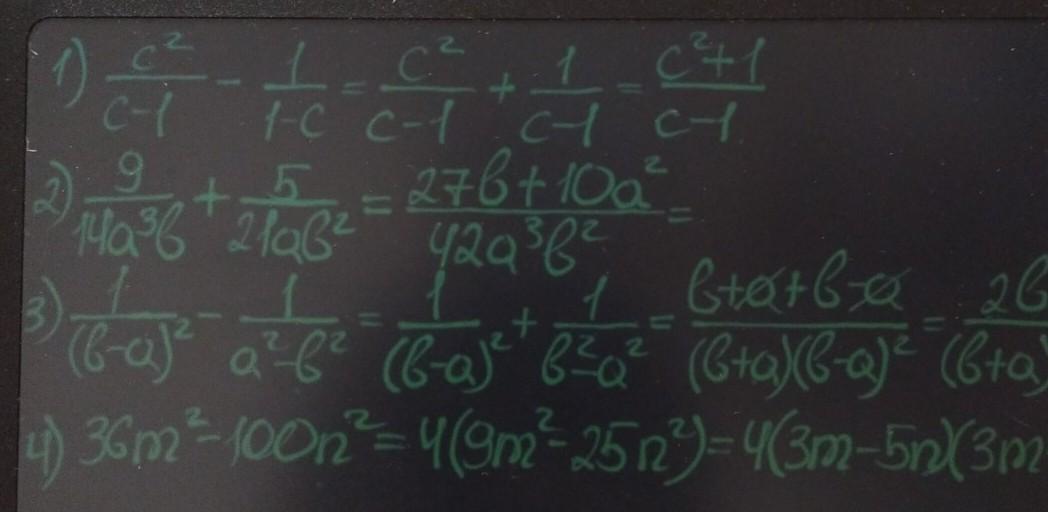 1) c²/(c-1) - 1/(1-c) = c²/(c-1) + 1/(c-1) = (c²+1)/(c-1)
2) 9/(14a³b) + 5/(21ab²) = (27b+10a²)/(42a³b²) =
3) 1/(b-a)² - 1/(a²-b²) = 1/(b-a)² + 1/(b²-a²) = (b+a+b-a)/((b+a)(b-a)²) = 2b/(b+a)
4) 36m²-100n²=4(9m²-25n²)=4(3m-5n)(3m